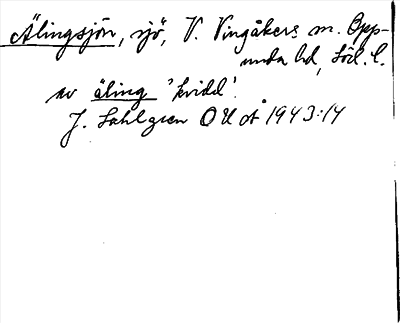 Älingsjön, sjö, V. Vingåkers sn. Opp-
unda hd, Södl. l.
av äling 'kvidd'.
J. Sahlgren OUoÅ 1943:14